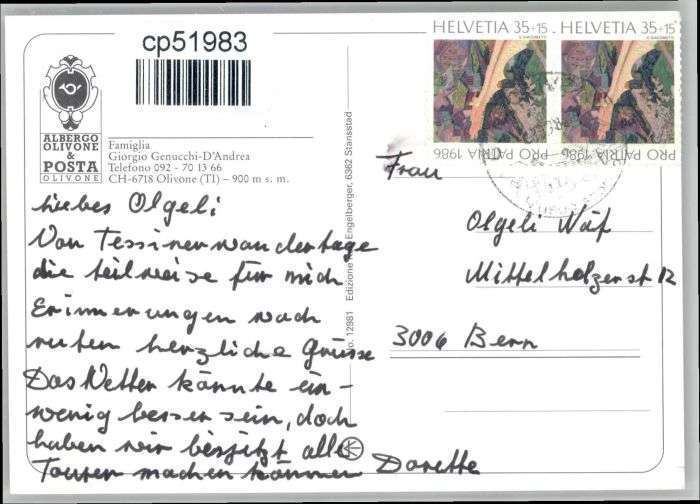 cp51983
HELVETIA 35+15
HELVETIA 35+15
PRO PATRIA 1986
PRO PATRIA 1986
ALBERGO
OLIVONE
&
POSTA
OLIVONE
Famiglia
Giorgio Genucchi-D'Andrea
Telefono 092 - 70 13 66
CH-6718 Olivone (TI) – 900 m s. m.
Liebes Olgeli
Von Tessinerwandertage
die teilweise für mich
Erinnerungen wach
rufen herzliche Grüsse
Das Wetter könnte ein-
wenig besser sein, doch
haben wir bis jetzt alle
Touren machen können Dorette
Frau
Olgeli Näf
Mittelholzerst 12
3006 Bern
no. 12981 Edizione Engelberger, 6362 Stansstad